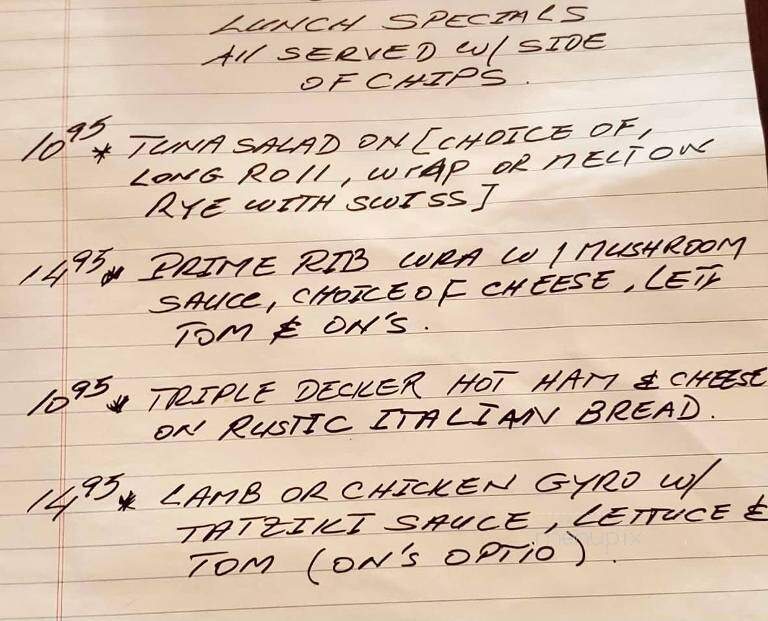 LUNCH SPECIALS
All SERVED W/ SIDE
OF CHIPS.
10 95 * TUNA SALAD ON [CHOICE OF,
LONG ROll, WrAP OR MELT ON
RYE WITH SWISS]
14 95 * PRIME RIB WRA W/ MUSHROOM
SAUCE, CHOICE OF CHEESE, LETT
TOM & ON'S.
10 95 * TRIPLE DECKER HOT HAM & CHEESE
ON RUSTIC ITALIAN BREAD.
14 95 * LAMB OR CHICKEN GYRO W/
TATZIKI SAUCE, LETTUCE &
TOM (ON'S OPTIO).
menupix